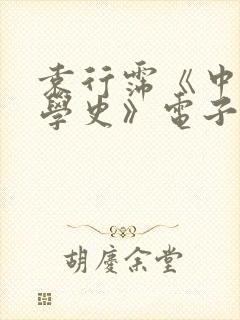 袁行霈《中
學史》電子
胡慶余堂